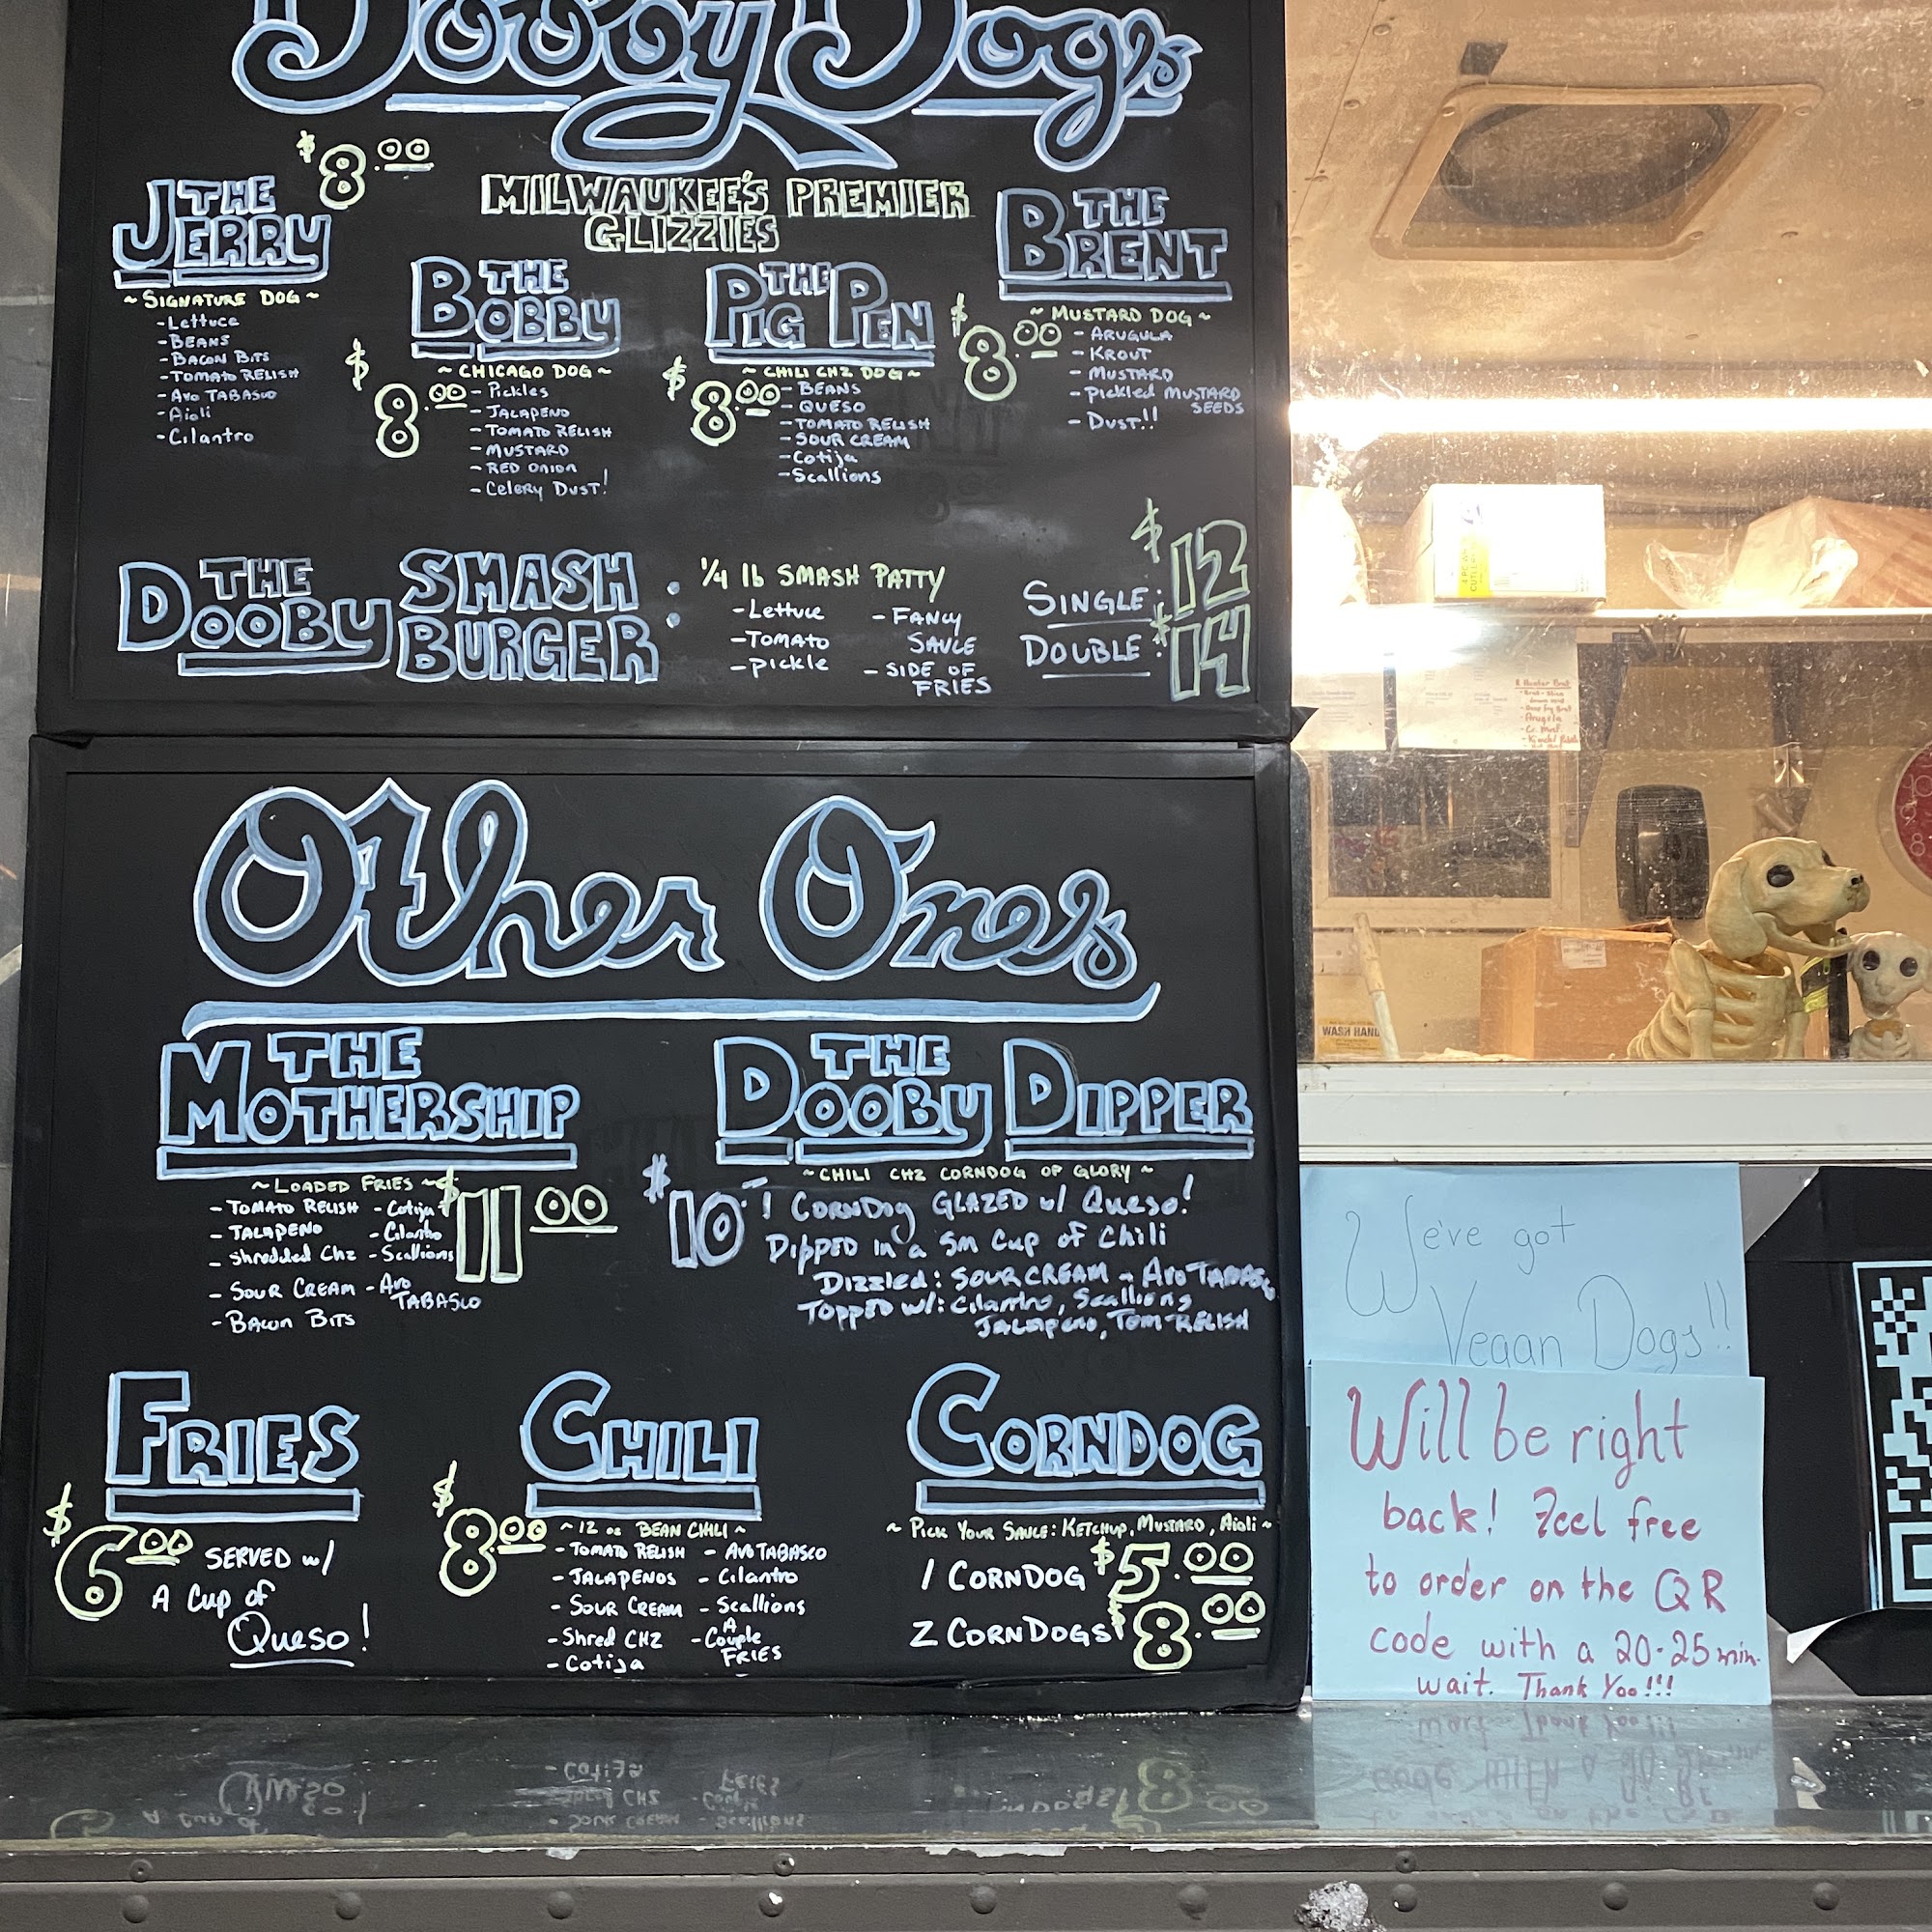 Dooby Dogs
$8.00
MILWAUKEE'S PREMIER
GLIZZIES
THE
JERRY
~ SIGNATURE DOG ~
- Lettuce
- BEANS
- BACON BITS
- TOMATO RELISH
- Avo TABASCO
- Aioli
- Cilantro
THE
BOBBY
~ CHICAGO DOG ~
$8.00
- Pickles
- JALAPENO
- TOMATO RELISH
- MUSTARD
- RED ONION
- Celery Dust!
THE
PIG PEN
~ CHILI CHZ DOG ~
$8.00
- BEANS
- QUESO
- TOMATO RELISH
- SOUR CREAM
- Cotija
- Scallions
THE
BRENT
~ MUSTARD DOG ~
$8.00
- ARUGULA
- KROUT
- MUSTARD
- Pickled MUSTARD
SEEDS
- DUST!!
THE
DOOBY
SMASH
BURGER :
1/4 lb SMASH PATTY
- Lettuce
- TOMATO
- pickle
- FANCY
SAUCE
- SIDE OF
FRIES
SINGLE: $12
DOUBLE: $14
Other Ones
THE
MOTHERSHIP
~ LOADED FRIES ~
$11.00
- TOMATO RELISH
- JALAPENO
- Shredded Chz
- SOUR CREAM
- BACON BITS
- Cotija
- Cilantro
- Scallions
- Avo
TABASCO
THE
DOOBY DIPPER
~ CHILI CHZ CORNDOG OF GLORY ~
$10
- 1 CORNDOG GLAZED w/ Queso!
DIPPED in a SM CUP of Chili
Dizzled: SOUR CREAM - Avo TABASCO
TOPPED w/: Cilantro, Scallions
JALAPENO, TOM-RELISH
FRIES
$6.00 SERVED w/
A Cup of
Queso!
CHILI
$8.00
~ 12 oz BEAN CHILI ~
- TOMATO RELISH
- JALAPENOS
- SOUR CREAM
- Shred CHZ
- Cotija
- AVO TABASCO
- Cilantro
- Scallions
- A
Couple
FRIES
CORNDOG
~ PICK YOUR SAUCE: KETCHUP, MUSTARD, Aioli ~
1 CORNDOG $5.00
2 CORNDOGS $8.00
WASH HAND
We've got
Vegan Dogs!!
Will be right
back! Feel free
to order on the QR
code with a 20-25 min.
wait. Thank Yoo!!!